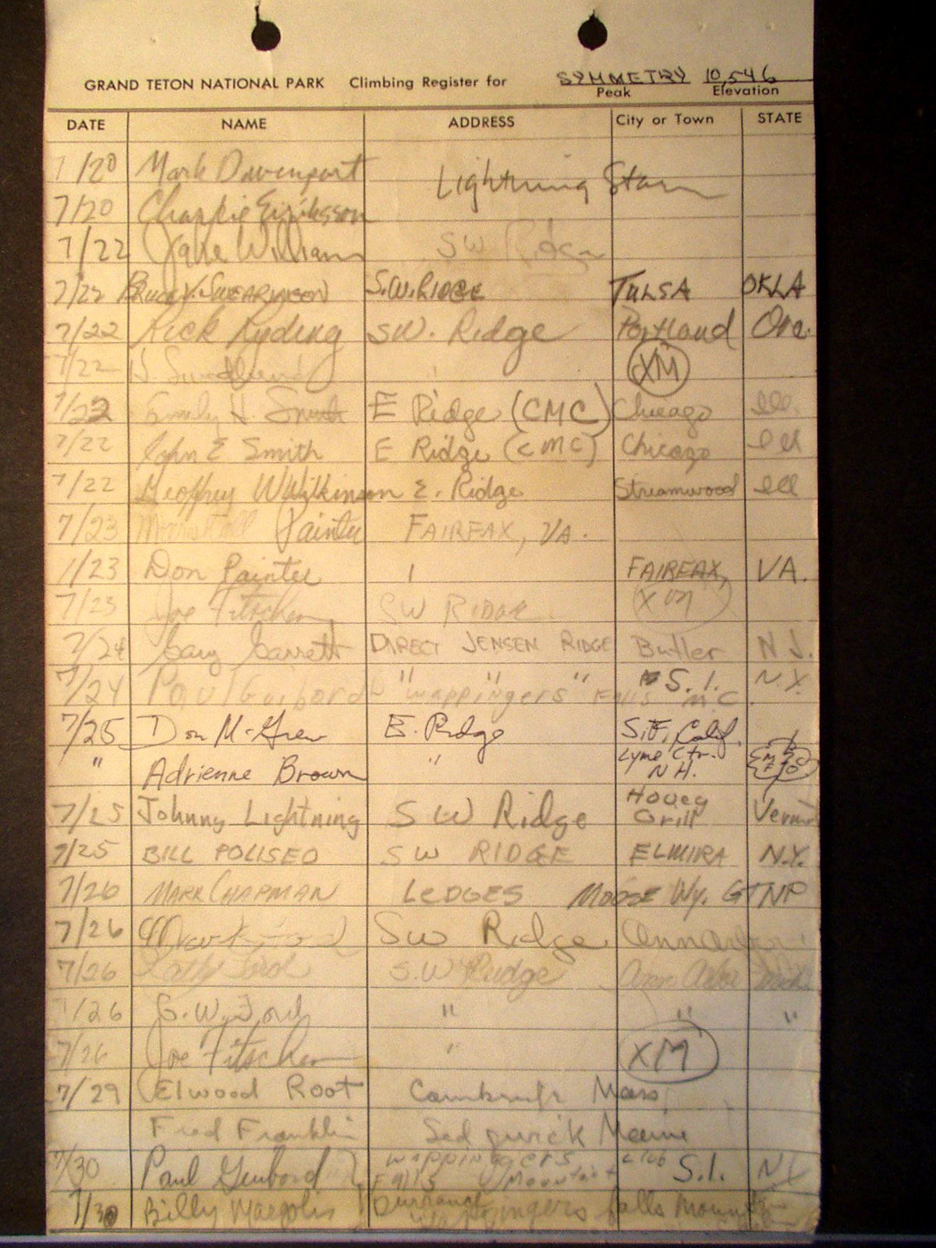 GRAND TETON NATIONAL PARK Climbing Register for SYMMETRY 10,546
Peak Elevation
DATE NAME ADDRESS City or Town STATE
7/20 Mark Davenport Lightning Storm
7/20 Charlie
7/22 Jake Williams SW Ridge
7/22 S.W. RIDGE TULSA OKLA
7/22 Rick Ryding SW. Ridge Portland Ore.
7/22 XM
7/22 Emily H. Smith E Ridge (CMC) Chicago Ill.
7/22 John E Smith E Ridge (CMC) Chicago Ill
7/22 Geoffrey W Wilkinson E. Ridge Streamwood Ill
7/23 Painter FAIRFAX, VA.
7/23 Don Painter FAIRFAX, VA.
7/23 Joe Fitschen SW RIDGE XM
7/24 Gary Garrett DIRECT JENSEN RIDGE Butler N.J.
7/24 Paul " wappingers " Falls M.C. S.I. N.Y.
7/25 Don McGrew E. Ridge S.F., Calif.
" Adrienne Brown " Lyme Ctr. N.H.
7/25 Johnny Lightning SW Ridge Grill Vermont
7/25 BILL POLISEO SW RIDGE ELMIRA N.Y.
7/26 MARK CHAPMAN LEDGES MOOSE Wy. GTNP
7/26 Mark Ford SW Ridge Ann Arbor
7/26 Kathy Ford S.W. Ridge Ann Arbor Mich
7/26 G.W. Ford " " "
7/26 Joe Fitschen " XM
7/29 Elwood Root Cambridge Mass
Fred Franklin Sedgwick Maine
7/30 Paul wappingers Falls Mountain Club S.I. N.Y.
7/30 Billy Margolis Wappingers falls Mount